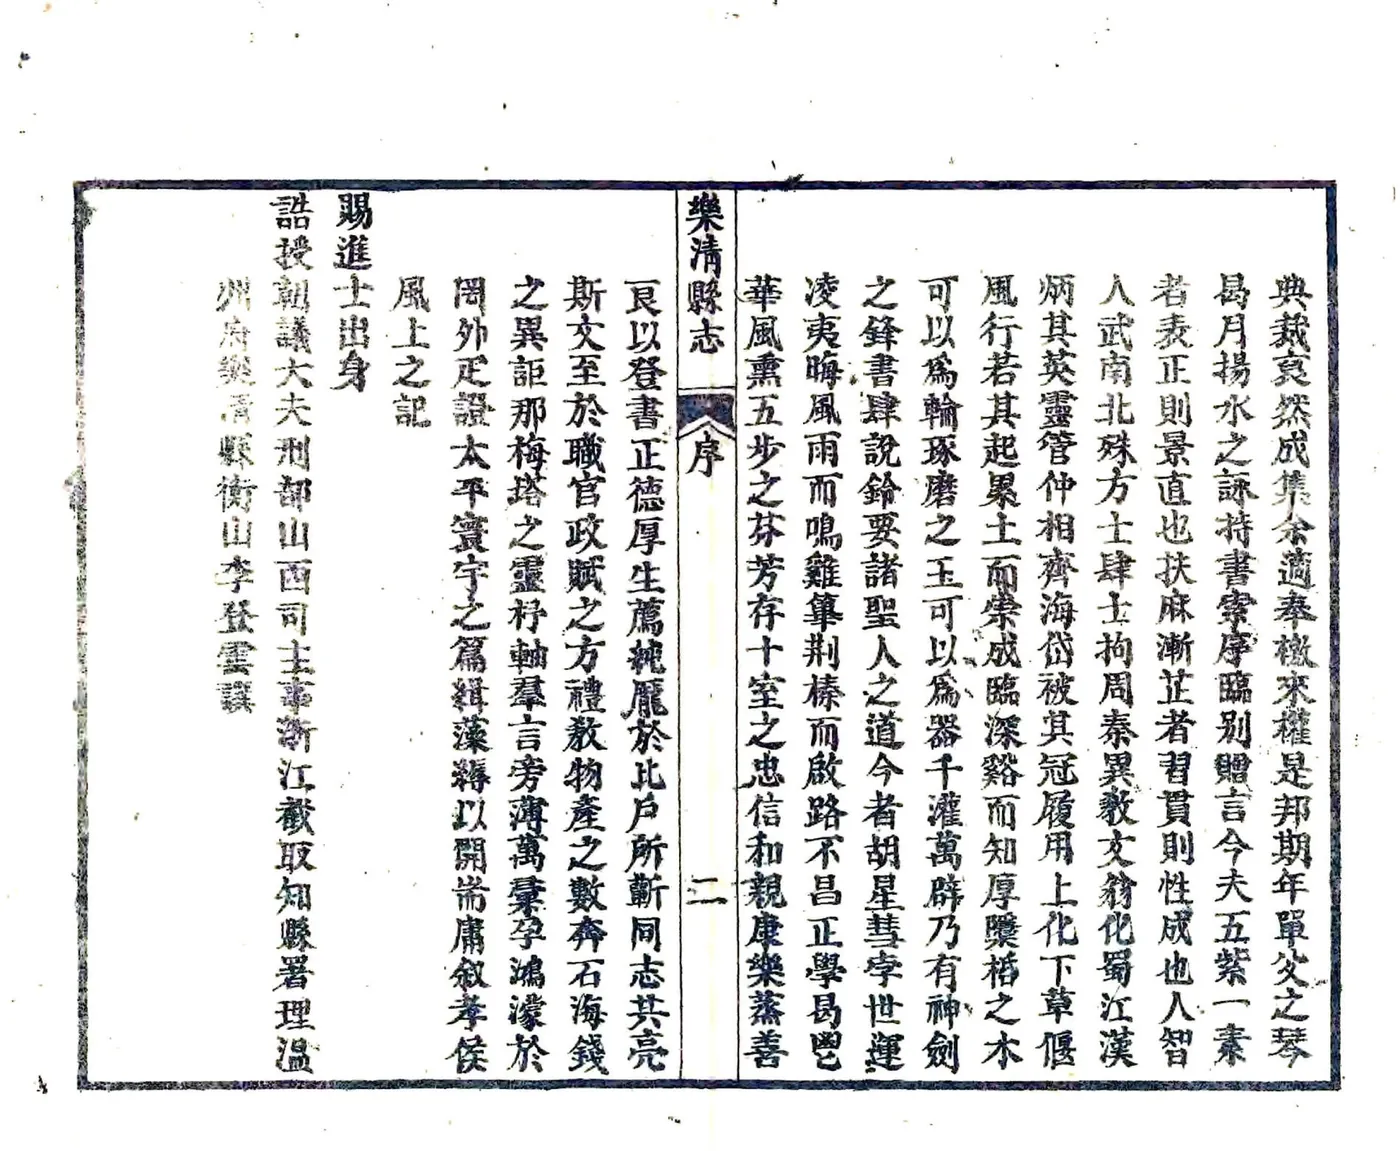 典裁裒然成集余適奉檄來權是邦期年單父之琴
曷月揚水之詠持書索序臨別贈言今夫五紫一素
者表正則景直也扶麻漸芷者習貫則性成也人智
人武南北殊方士肆士拘周秦異敎文翁化蜀江漢
炳其英靈管仲相齊海岱被其冠履用上化下草偃
風行若其起累土而崇成臨深谿而知厚檃栝之木
可以爲輪琢磨之玉可以爲器千灌萬辟乃有神劍
之鋒書肆說鈴要諸聖人之道今者胡星彗孛世運
凌夷晦風雨而鳴雞篳荆榛而啟路不昌正學曷鬯
華風熏五步之芬芳存十室之忠信和親康樂蒸善
樂淸縣志
序
二
艮以登書正德厚生薦純厖於比戶所蘄同志共亮
斯文至於職官政賦之方禮敎物產之數奔石海錢
之異詎那梅塔之靈杼軸羣言旁薄萬彙孕鴻濛於
罔外疋證太平寰宇之篇緝藻縟以開耑庸敘孝侯
風土之記
賜進士出身
誥授朝議大夫刑部山西司主事浙江截取知縣署理溫
州府樂淸縣衡山李登雲譔